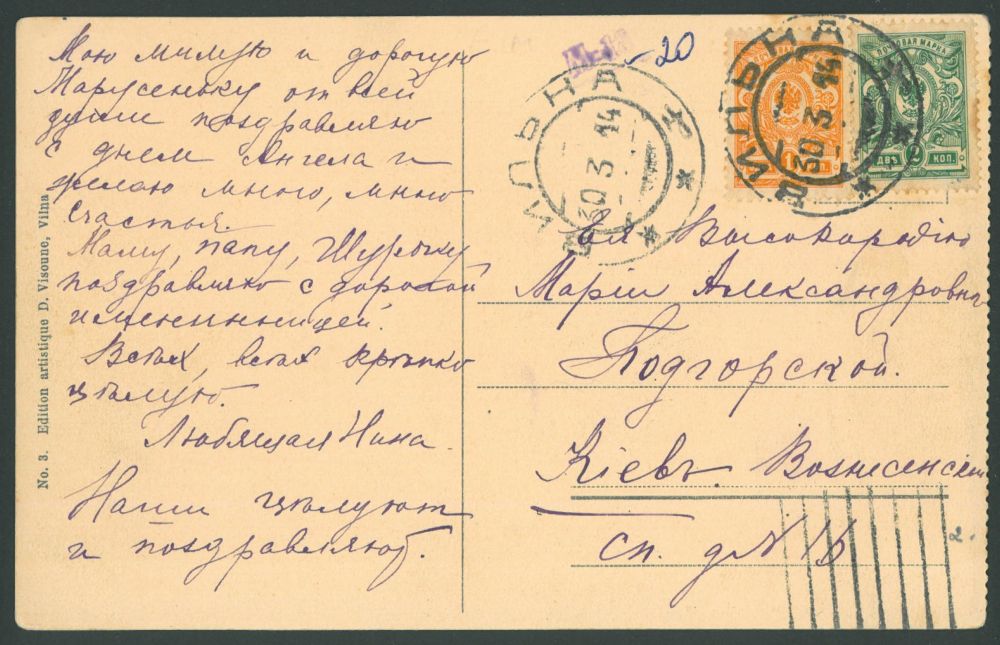 Мою милую и дорогую
Марусеньку от всей
души поздравляю
с днем Ангела и
желаю много, много
счастья.
Маму, папу, Шурочку
поздравляю с дорогой
именинницей.
Всѣх, всѣх крѣпко
цѣлую.
Любящая Нина.
Наши цѣлуют
и поздравляют.
No. 3. Edition artistique D. Visoune, Vilna
-20
ВИЛЬНА
30 3 14
ВИЛЬНА
30 3 14
ПОЧТОВАЯ МАРКА
2 ДВѢ КОП. 2
Ея Высокородію
Маріи Александровнѣ
Подгорской.
Кіевъ. Вознесенскій
сп. д № 16
2.